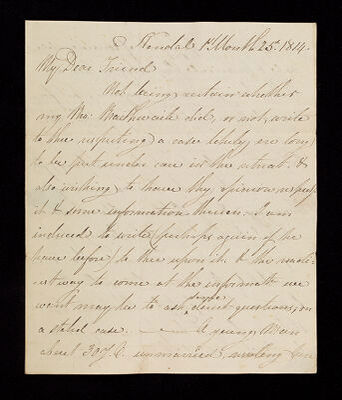 Kendal 1st Month 25th 1814.
My Dear Friend
Not being certain whether
my Mr. Braithwaite did, or not, write
to thee respecting a case likely ere long
to be put under care in the retreat. &
also wishing to have thy opinion respectg.
it & some information therein. I am
induced to write (perhaps again if he
have before) to thee upon it. & the
way to come at the informatn. we
want may be to ask simple
direct questions, on
a stated case. — A young Man
about 30 y. O. unmarried,